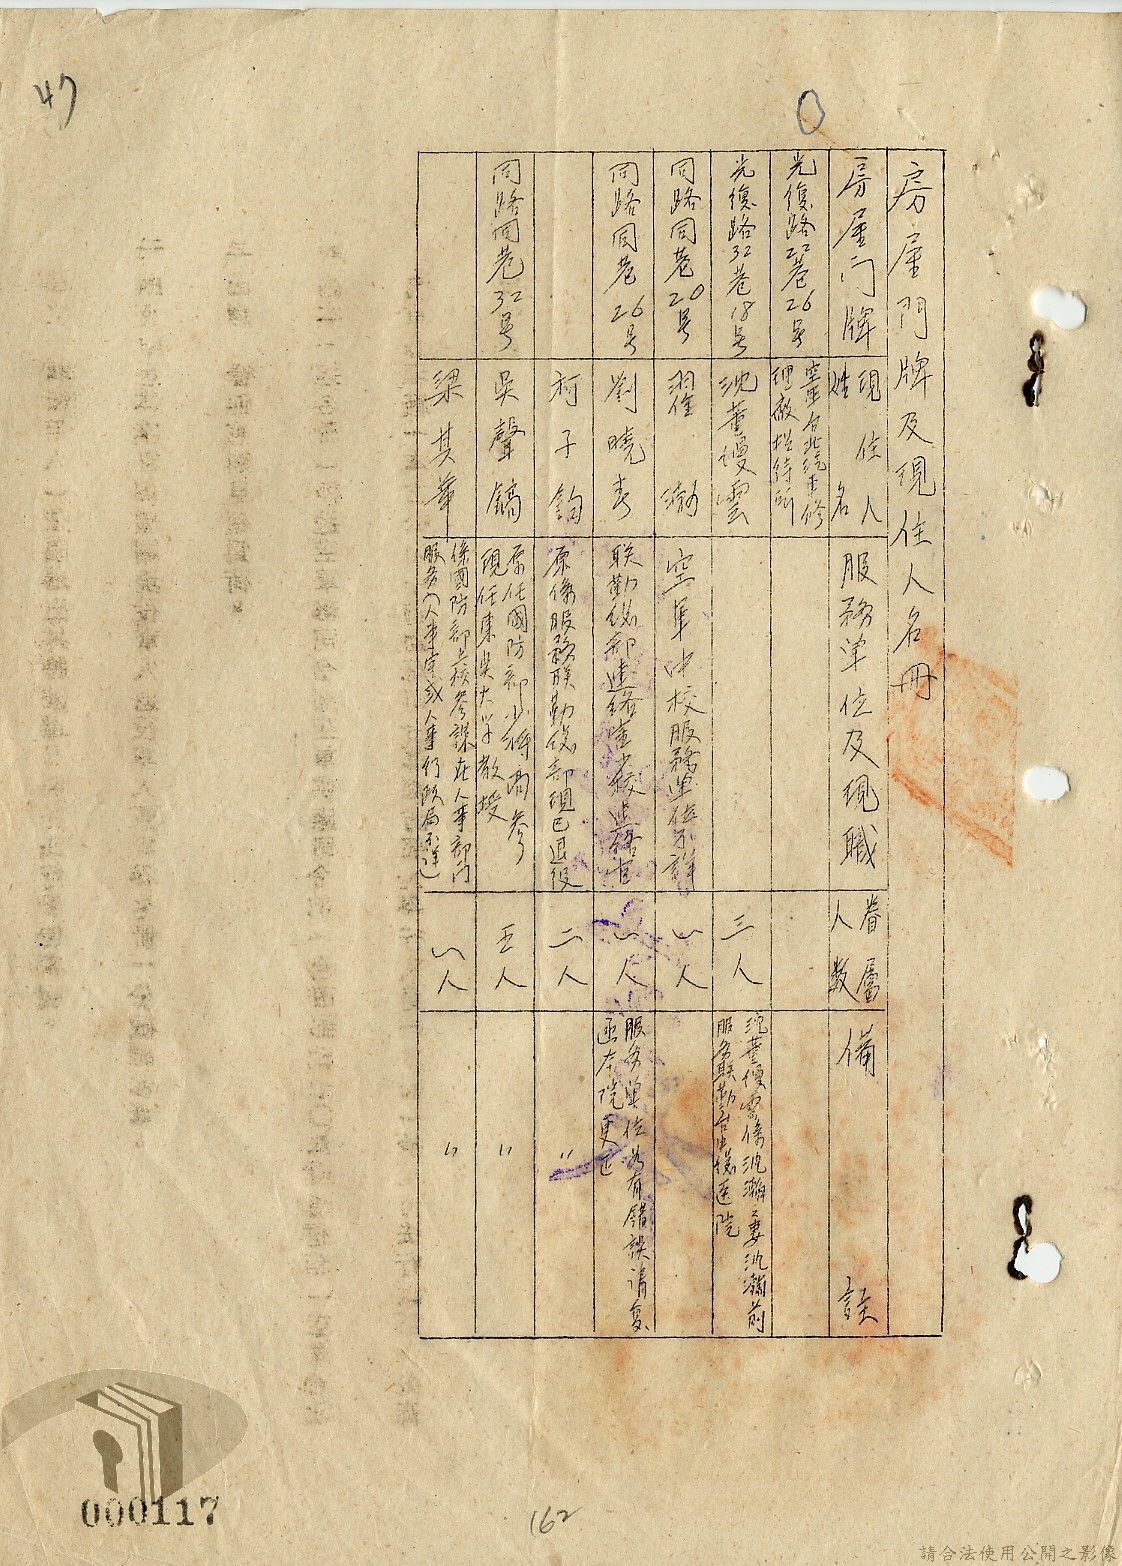 47
房屋門牌及現住人名冊
房屋门牌
現住人
姓名
服務単位及現職
眷屬
人數
備註
光復路22巷26号
空軍台北汽車修
理廠招待所
光復路32巷18号
沈董優雲
三人
沈董優雲係沈瀚之妻沈瀚前
服务联勤台中總医院
同路同巷20号
空軍中校服務単位不詳
一人
同路同巷26号
劉曉春
联勤總部連絡室少校連絡官
一人
服务単位如有錯誤请复
函本院更正
柯子鈞
原係服務联勤總部現已退役
二人
〃
同路同巷32号
吳聲鎬
原任國防部少將高參
現任東吳大学教授
五人
〃
梁其華
係國防部上校參謀在人事部门
服务(人事室或人事行政局不详)
一人
〃
000117
162
請合法使用公開之影像